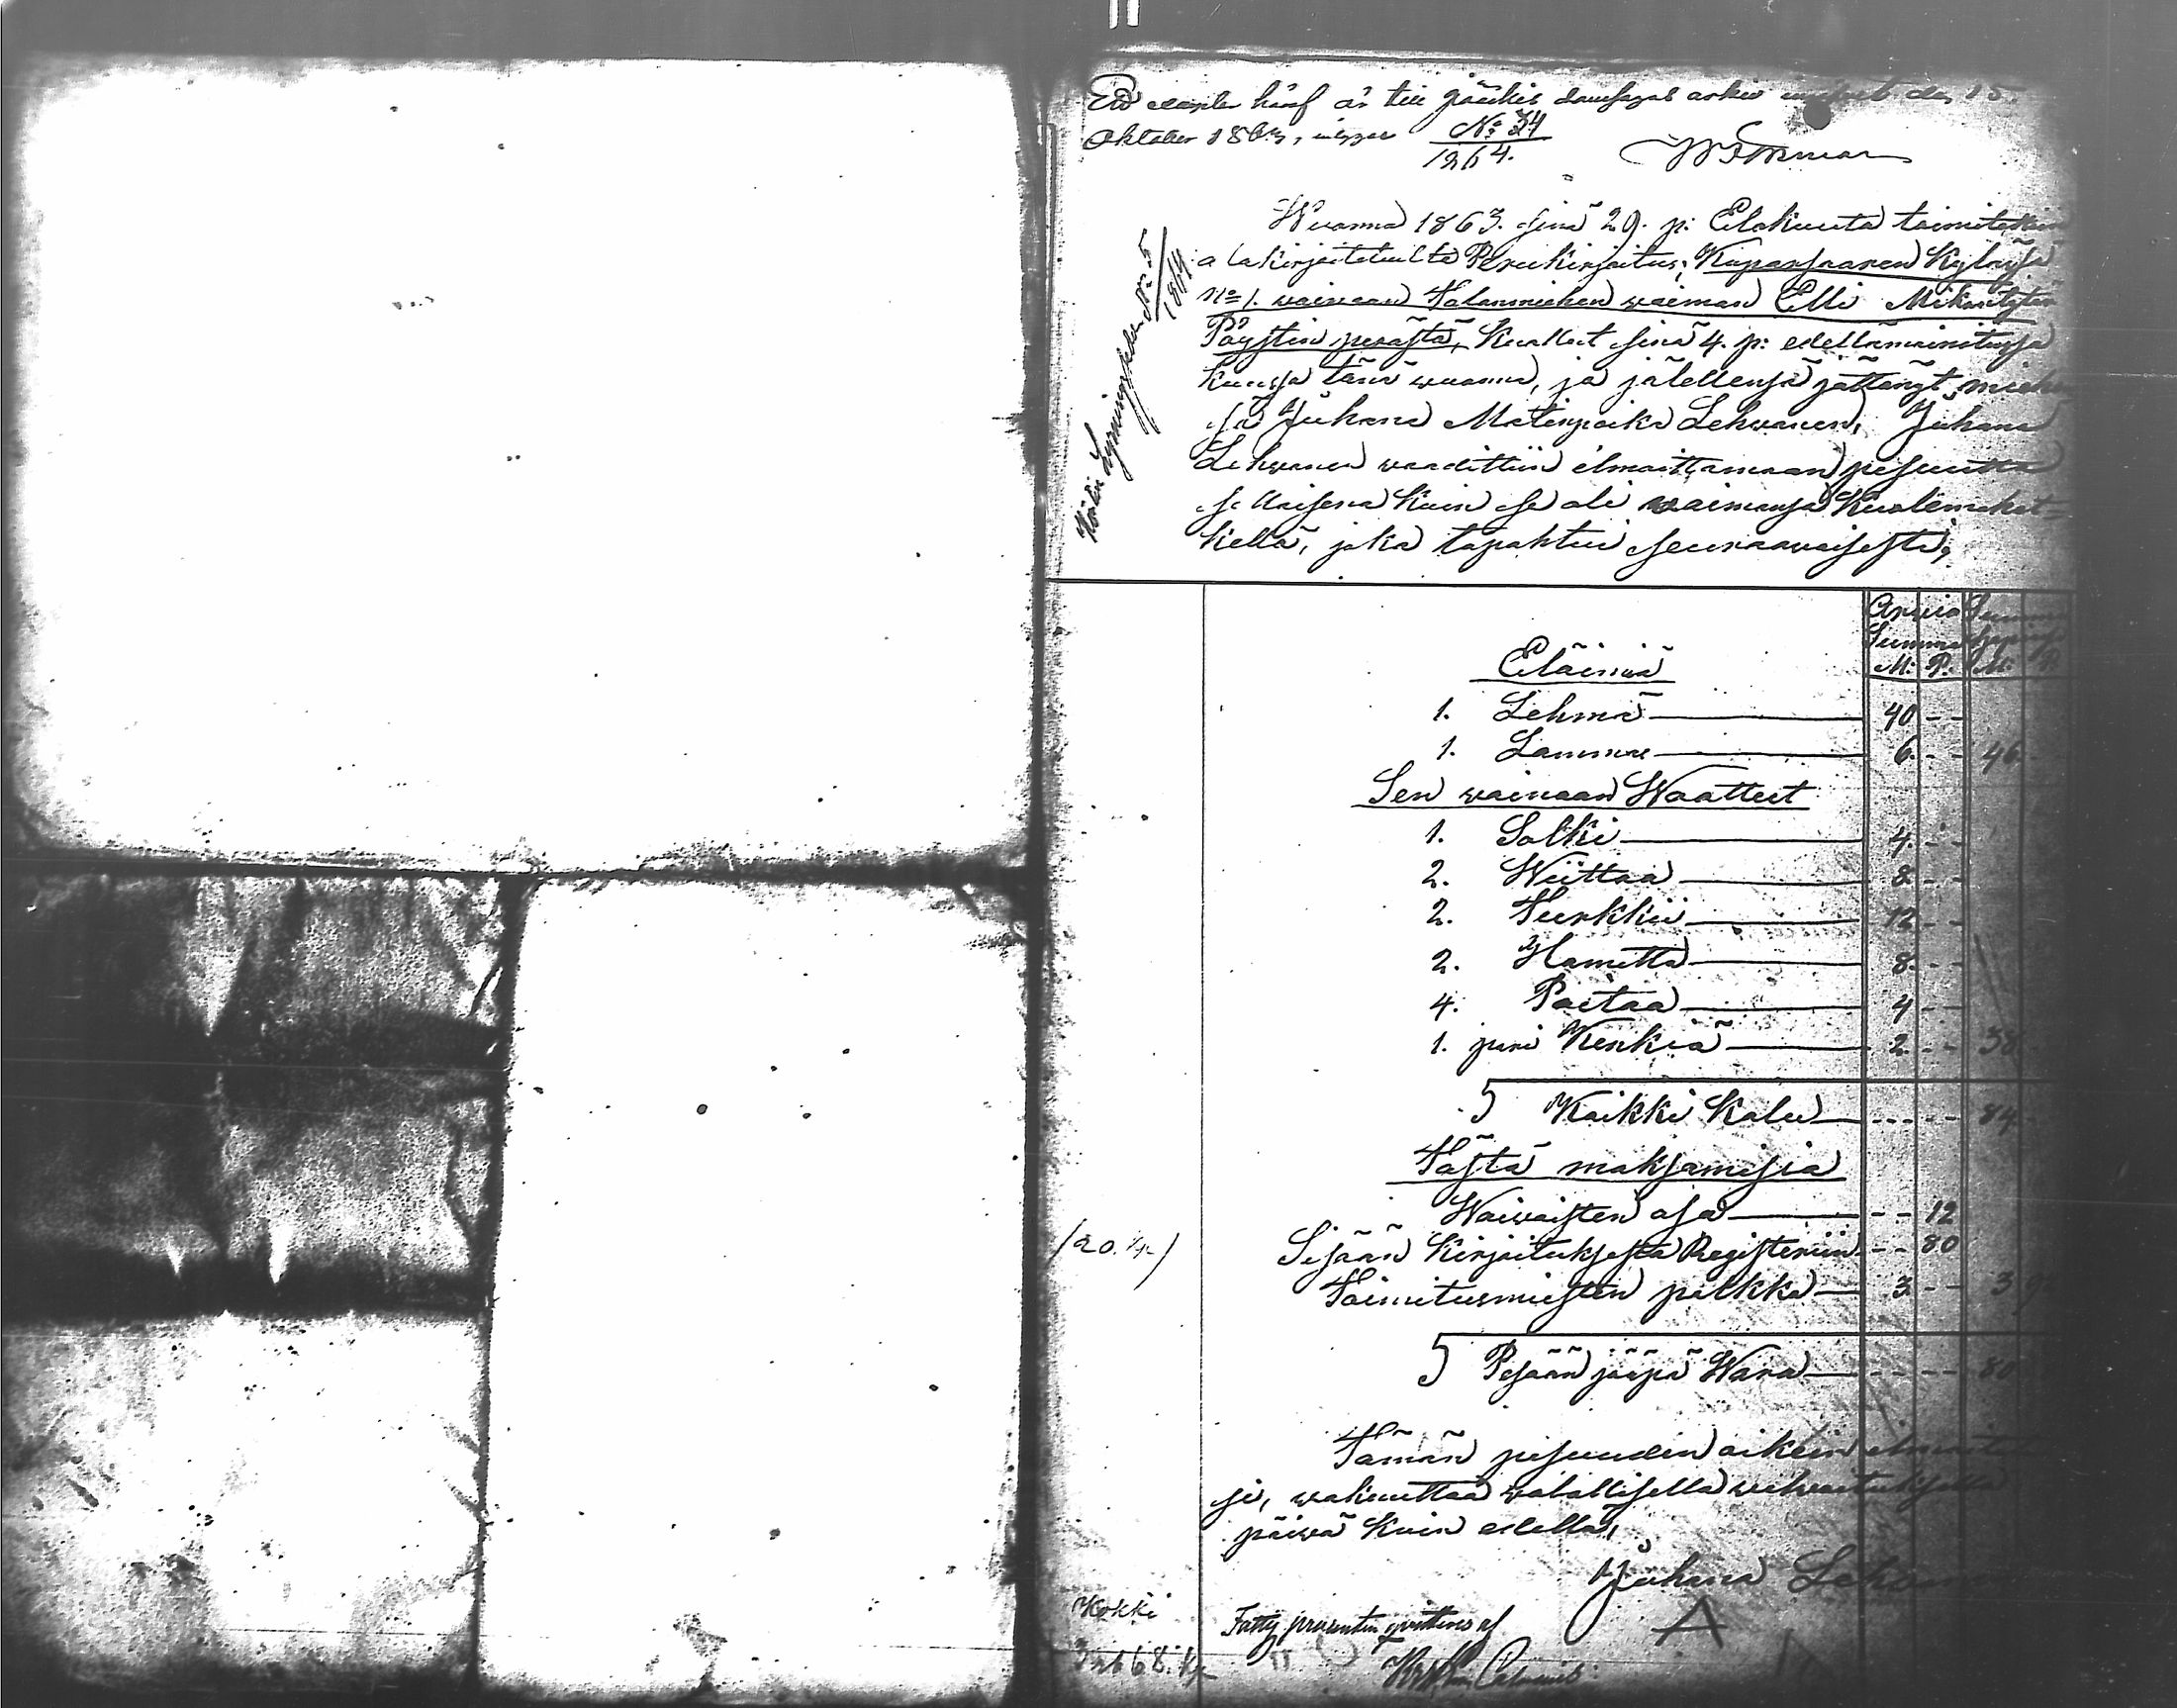 Ett exemplar häraf är till Jääskis domsagas arkiv inlemt den 15
Oktober 1863, intygar
No 34
1864.
Wuonna 1863. sinä 29. p: Elokuuta toimitettiin
allakirjoitetuilta Perukirjoitus; Kuparsaaren Kylässä
No 1. wainaan Talonmiehen waimon Elli Mikontytär
Pöystin perästä, Kuollut sinä 4. p: edellämainitussa
kuussa tänä wuonna, ja jälellensä jättänyt miehen
sä Juhana Matinpoika Lehwanen, Juhana
Lehwanen waadittiin ilmoittamaan pesuutta
sellaisena kuin se oli waimonsa kuolemahet=
kellä, joka tapahtui seuraawaisesti;
No 5
1864
Arwio Summa
Summa
M: P. M: P.
Eläimiä
1. Lehmä 40 - -
1. Lammas 6 - - 46
Sen wainaan Waatteet
1. Solki 4 - -
2. Wiittaa 8 - -
2. Turkkii 12 - -
2. Hametta 8 - -
4. Paitaa 4 - -
1. pari Kenkiä 2 - - 38
S Kaikki Kalu - - - - 84
Tästä maksamisia
Waiwaisten osa - - 12
/20. kp/ Sisään Kirjoituksesta Registeriin - - 80
Toimitusmiesten palkka 3 - - 3 9
S Pesään jääpä Wara - - - - 80
Tämän pesuuden oikein ilmoite
si, wakuuttaa walallisella welwoituksella
päiwä kuin edellä,
Juhana Lehwanen
Fattig procenten qvitteras af
Kokki
68. kp